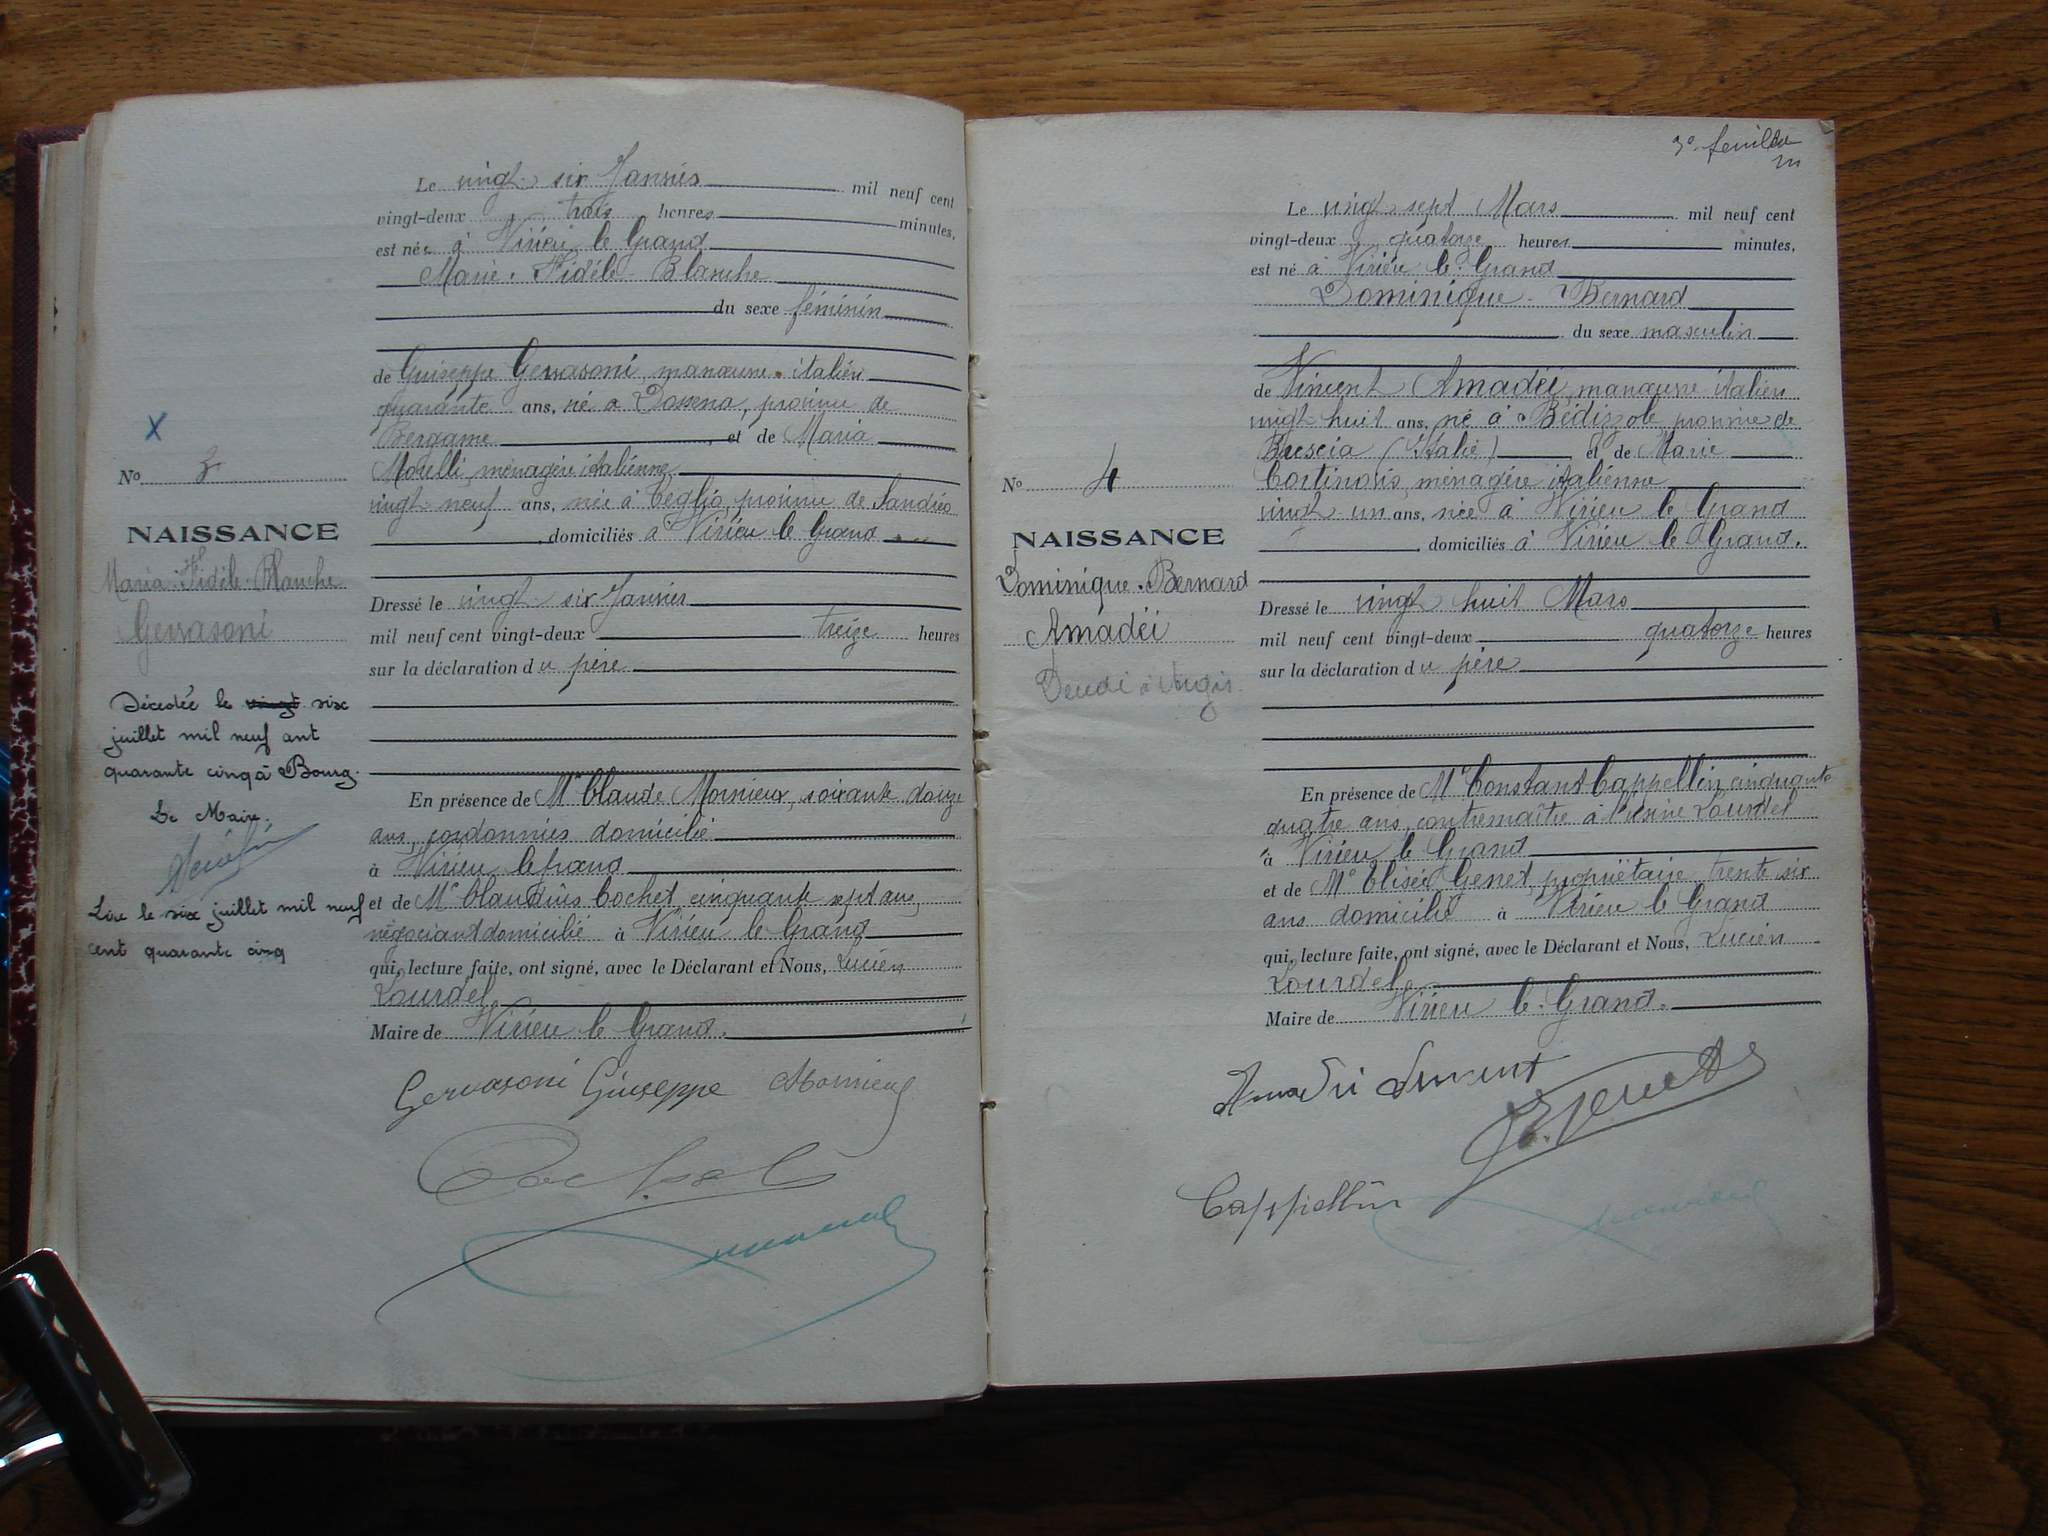 Le vingt six Janvier mil neuf cent
vingt-deux trois heures minutes,
est née à Virieu le Grand
Marie Fidèle Blanche
du sexe féminin
de Guiseppe Gervasoni, manœuvre italien
quarante ans, né à Dossena, province de
Bergame, et de Maria
Morelli, ménagère italienne
vingt neuf ans, née à Teglio, province de Sandrio
, domiciliés à Virieu le Grand
Dressé le vingt six Janvier
mil neuf cent vingt-deux treize heures
sur la déclaration du père
En présence de Mr Claude Mornieux, soixante douze
ans, cordonnier domicilié
à Virieu le Grand
et de Mr Claudius Cochet, cinquante sept ans,
négociant domicilié à Virieu le Grand
qui, lecture faite, ont signé, avec le Déclarant et Nous, Lucien
Lourdel
Maire de Virieu le Grand.
Gervasoni Giuseppe Mornieux
Cochet
X
No 3
NAISSANCE
Maria Fidèle Blanche
Gervasoni
Décédée le vingt six
juillet mil neuf cent
quarante cinq à Bourg.
Le Maire,
Lire le six juillet mil neuf
cent quarante cinq
3e feuillet
Le vingt sept Mars mil neuf cent
vingt-deux quatorze heures minutes,
est né à Virieu le Grand
Dominique Bernard
du sexe masculin
de Vincent Amadéi, manœuvre italien
vingt huit ans, né à Bédizzole province de
Brescia (Italie) et de Marie
Cortinovis, ménagère italienne
vingt un ans, née à Virieu le Grand
, domiciliés à Virieu le Grand.
Dressé le vingt huit Mars
mil neuf cent vingt-deux quatorze heures
sur la déclaration du père
En présence de Mr Constant Cappellin, cinquante
quatre ans, contremaître à l'usine Lourdel
à Virieu le Grand
et de Mr Elisée Gesset, propriétaire, trente six
ans domicilié à Virieu le Grand
qui, lecture faite, ont signé, avec le Déclarant et Nous, Lucien
Lourdel
Maire de Virieu le Grand.
Amadei Vincent
Cappellin
No 4
NAISSANCE
Dominique Bernard
Amadéi